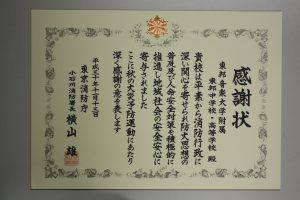 感謝状
東邦音楽大学附属
東邦中学校・高等学校 殿
貴校は平素から消防行政に
深い関心を寄せられ防火思想の
普及及び人命安全対策を積極的に
推進し地域社会の安全安心に
寄与されました
ここに秋の火災予防運動にあたり
深く感謝の意を表します
平成三十年十一月十三日
東京消防庁
小石川消防署長 横山 雄